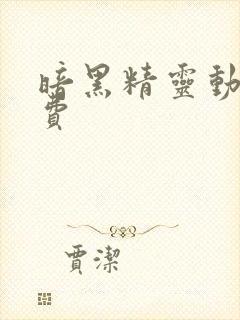 暗黑精靈動
費
賈潔